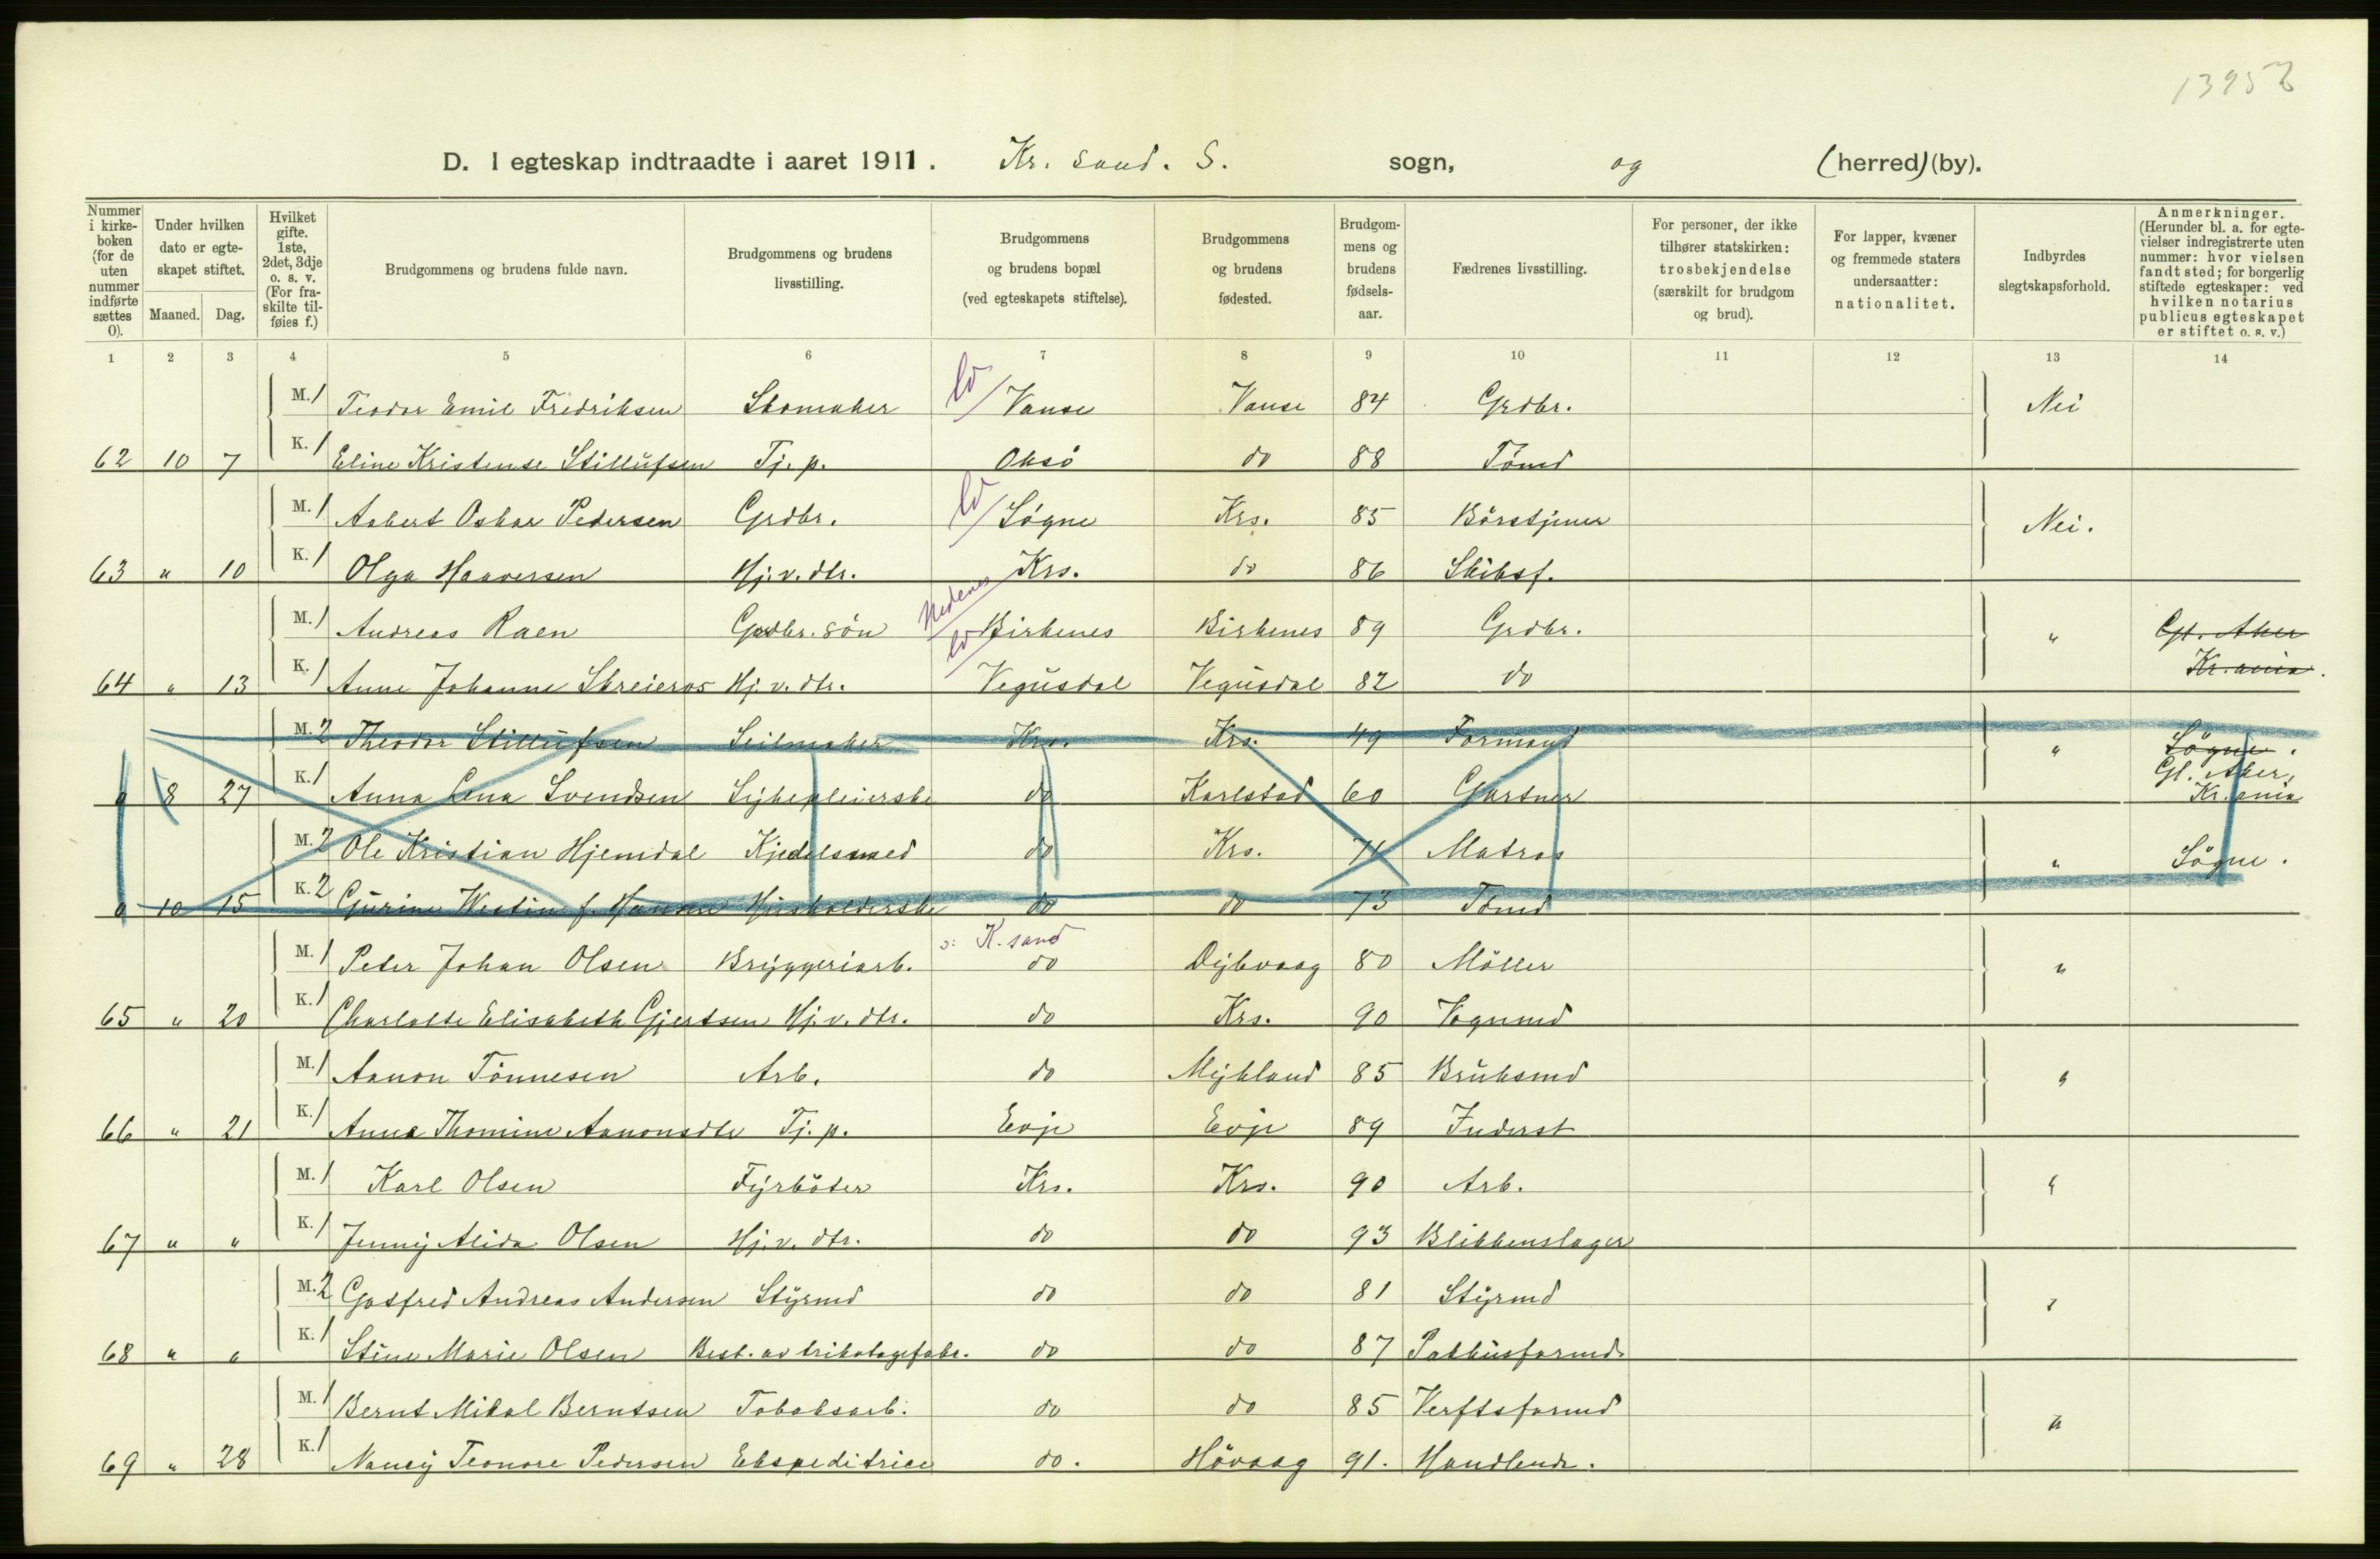 1395
D. I egteskap indtraadte i aaret 1911. Kr. sand. S. sogn, og (herred) (by).
Nummer i kirkeboken (for de uten nummer indførte sættes 0). Under hvilken dato er egteskapet stiftet. Maaned. Dag. Hvilket gifte. 1ste, 2det, 3dje o. s. v. (For fraskilte tilføies f.) Brudgommens og brudens fulde navn. Brudgommens og brudens livsstilling. Brudgommens og brudens bopæl (ved egteskapets stiftelse). Brudgommens og brudens fødested. Brudgommens og brudens fødselsaar. Fædrenes livsstilling. For personer, der ikke tilhører statskirken: trosbekjendelse (særskilt for brudgom og brud). For lapper, kvæner og fremmede staters undersaatter: nationalitet. Indbyrdes slegtskapsforhold. Anmerkninger. (Herunder bl. a. for egtevielser indregistrerte uten nummer: hvor vielsen fandt sted; for borgerlig stiftede egteskaper: ved hvilken notarius publicus egteskapet er stiftet o. s. v.)
1 2 3 4 5 6 7 8 9 10 11 12 13 14
M. 1 Teodor Emil Fredriksen Skomaker Vanse Vanse 84 Grdbr. Nei
62 10 7 K. 1 Eline Kristense Stillufsen Tj. p. Oksö do 88 Tömd
M. 1 Aabert Oskar Pedersen Grdbr. Søgne Krs. 85 Börstjener Nei.
63 " 10 K. 1 Olga Haaversen Hj. v. dtr. Krs. do 86 Skibsf.
Nedenes
M. 1 Andreas Raen Grdbr. sön Birkenes Birkenes 89 Grdbr. " Gl. Aker
64 " 13 K. 1 Anne Johanne Skreieros Hj. v. dtr. Vegusdal Vegusdal 82 do Kr.ania.
M. 2 Theodor Stillufsen Seilmaker Krs. Krs. 49 Formand " Søgne.
0 8 27 K. 1 Anna Lena Svendsen Sykepleierske do Karlstad 60 Gartner Gl. Aker, Kr.ania
M. 2 Ole Kristian Hjemdal Kjedelsmed do Krs. 71 Matros " Søgne.
0 10 15 K. 2 Gurine Westin f. Hansen Husholderske do do 73 Tömd
ɔ: K. sand
M. 1 Peter Johan Olsen Bryggeriarb. do Dybvaag 80 Möller "
65 " 20 K. 1 Charlotte Elisabeth Gjertsen Hj. v. dtr. do Krs. 90 Vognmd
M. 1 Aanon Tönnesen Arb. do Mykland 85 Bruksmd "
66 " 21 K. 1 Anna Thomine Aanonsdtr Tj. p. Evje Evje 89 Inderst
M. 1 Karl Olsen Fyrböter Krs. Krs. 90 Arb. "
67 " " K. 1 Jenny Alida Olsen Hj. v. dtr. do do 93 Blikkenslager
M. 2 Gotfred Andreas Andersen Styrmd do do 81 Styrmd "
68 " " K. 1 Stine Marie Olsen Best. av trikotagefabr. do do 87 Pakhusformd.
M. 1 Bernt Mikal Berntsen Tobaksarb. do do 85 Verftsformd "
69 " 28 K. 1 Nancy Teonore Pedersen Ekspeditrice do. Hövaag 91. Handlende.